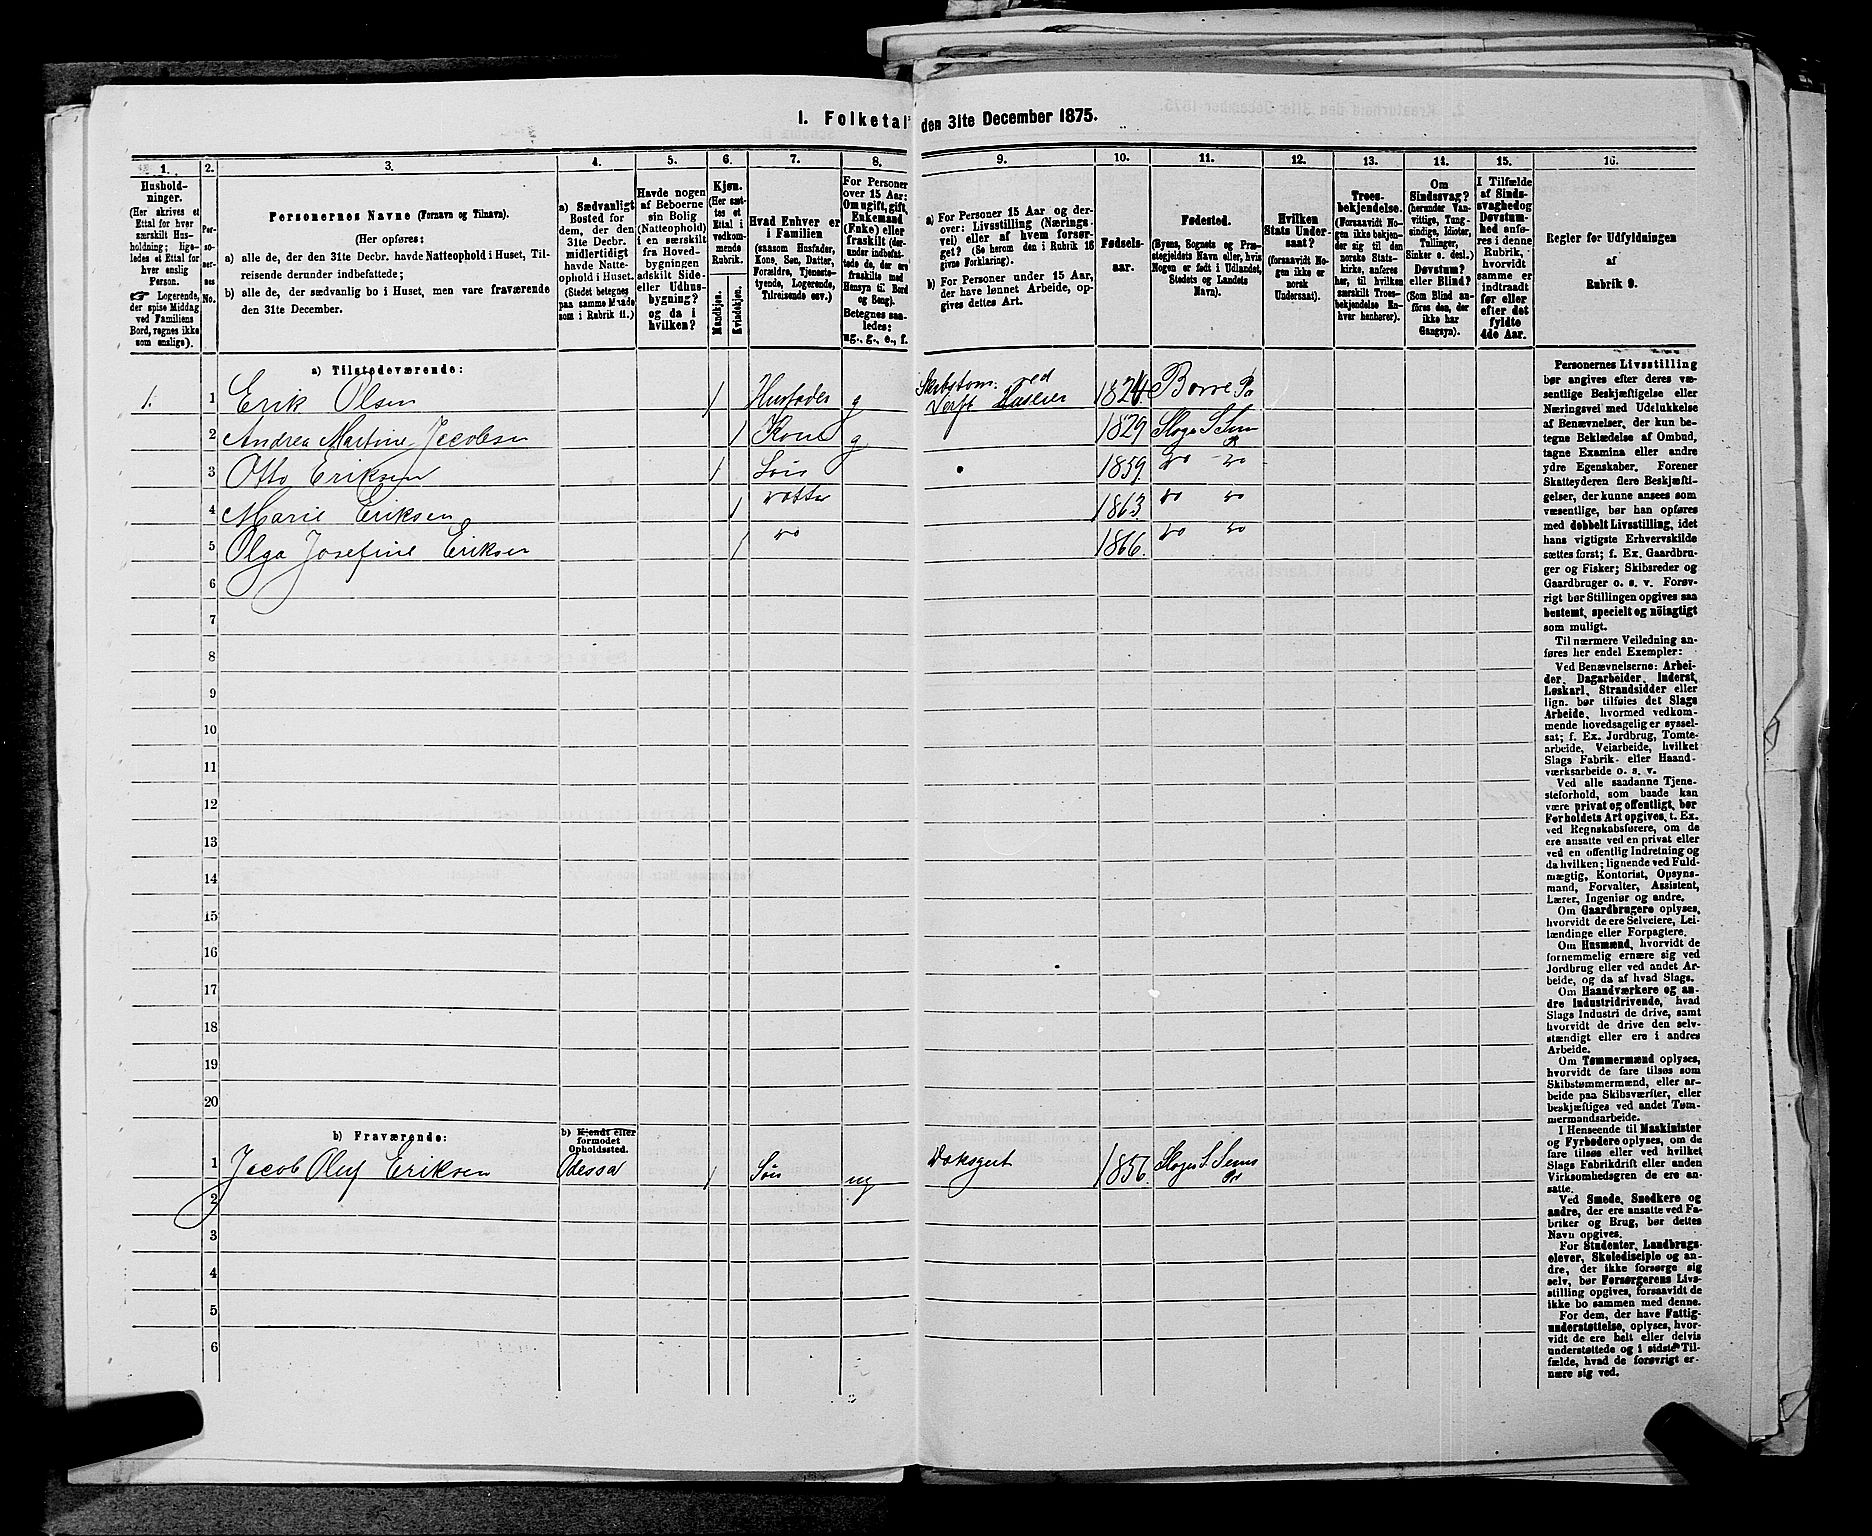 I. Folketal den 31te December 1875.
1. 2. 3. 4. 5. 6. 7. 8. 9. 10. 11. 12. 13. 14. 15. 16.
Hushold-
ninger.
(Her skrives et
Ettal for hver
særskilt Hus-
holdning; lige-
ledes et Ettal for
hver enslig
Person.
☞ Logerende,
der spise Middag
ved Familiens
Bord, regnes ikke
som enslige).
Per-
so-
ner-
nes
No.
Personernes Navne (Fornavn og Tilnavn).
(Her opføres:
a) alle de, der den 31te Decbr. havde Natteophold i Huset, Til-
reisende derunder indbefattede;
b) alle de, der sædvanlig bo i Huset, men vare fraværende
den 31te December.
a) Sædvanligt
Bosted for
dem, der den
31te Decbr.
midlertidigt
havde Natte-
ophold i Huset.
(Stedet betegnes
paa samme Maade
som i Rubrik 11.)
Havde nogen
af Beboerne
sin Bolig
(Natteophold)
i en særskilt
fra Hoved-
bygningen
adskilt Side-
eller Udhus-
bygning?
og da i
hvilken?
Kjøn.
(Her sæt-
tes et
Ettal i
vedkom-
mende
Rubrik.
Mandkjøn.
Kvindekjøn.
Hvad Enhver er
i Familien
(saasom Husfader,
Kone, Søn, Datter,
Forældre, Tjeneste-
tyende, Logerende,
Tilreisende osv.)
For Personer
over 15 Aar:
Om ugift, gift,
Enkemand
(Enke) eller
fraskilt (der-
under indbefat-
tede de, der ere
fraskilte med
Hensyn til Bord
og Seng).
Betegnes saa-
ledes:
ug., g., e., f.
a) For Personer 15 Aar og der-
over: Livsstilling (Nærings-
vei) eller af hvem forsør-
get? (Se herom den i Rubrik 16
givne Forklaring).
b) For Personer under 15 Aar,
der have lønnet Arbeide, op-
gives dettes Art.
Fødsels-
aar.
Fødested.
(Byens, Sognets og Præ-
stegjeldets Navn eller, hvis
Nogen er født i Udlandet,
Stedets og Landets
Navn).
Hvilken
Stats Under-
saat?
(forsaavidt No-
gen ikke er
norsk
Undersaat).
Troes-
bekjendelse.
(Forsaavidt No-
gen ikke bekjen-
der sig til den
norske Stats-
kirke, anføres
her, til hvilken
særskilt Troes-
bekjendelse En-
hver henhører).
Om
Sindssvag?
(herunder Van-
vittige, Tung-
sindige, Idioter,
Tullinger,
Sinker o. desl.)
Døvstum?
eller Blind?
(Som Blind an-
føres den, der
ikke har
Gangsyn).
I Tilfælde
af Sinds-
svaghed og
Døvstum-
hed anfø-
res i denne
Rubrik,
hvorvidt
samme er
indtraadt
før eller
efter det
fyldte
4de Aar.
Regler for Udfyldningen
af
Rubrik 9.
a) Tilstedeværende:
1. 1 Erik Olsen 1 Husfader g Skibstøm: ved Verft Huseier 1826 Borre Pr
2 Andrea Martine Jacobsen 1 Kone g 1829 Slagn S. Sem Pr
3 Otto Eriksen 1 Søn 1859. do do
4 Marie Eriksen 1 Datter 1863. do do
5 Olga Josefine Eriksen 1 do 1866. do do
6
7
8
9
10
11
12
13
14
15
16
17
18
19
20
b) Fraværende:
b) Kjendt eller
formodet
Opholdssted.
1 Jacob Oluf Eriksen Odessa 1 Søn ug 1856. Slagn S. Sems Pr
2
3
4
5
6
Personernes Livsstilling
bør angives efter deres væ-
sentlige Beskjæftigelse eller
Næringsvei med Udelukkelse
af Benævnelser, der kun be-
tegne Beklædelse af Ombud,
tagne Examina eller andre
ydre Egenskaber. Forener
Skatteyderen flere Beskjæfti-
gelser, der kunne ansees som
væsentlige, bør han opføres
med dobbelt Livsstilling, idet
hans vigtigste Erhvervskilde
sættes først; f. Ex. Gaardbru-
ger og Fisker; Skibsreder og
Gaardbruger o. s. v. Forøv-
rigt bør Stillingen opgives saa
bestemt, specielt og nöiagtigt
som muligt.
Til nærmere Veiledning an-
føres her endel Exempler:
Ved Benævnelserne: Arbei-
der, Dagarbeider, Inderst,
Løskarl, Strandsidder eller
lign. bør tilføies det Slags
Arbeide, hvormed vedkom-
mende hovedsagelig er syssel-
sat; f. Ex. Jordbrug, Tomte-
arbeide, Veiarbeide, hvilket
Slags Fabrik- eller Haand-
værksarbeide o. s. v.
Ved alle saadanne Tjene-
steforhold, som baade kan
være privat og offentligt, bør
Forholdets Art opgives, t. Ex.
ved Regnskabsførere, om de
ere ansatte ved en privat eller
ved en offentlig Indretning og
da hvilken; lignende ved Fuld-
mægtig, Kontorist, Opsyns-
mand, Forvalter, Assistent,
Lærer, Ingeniør og andre.
Om Gaardbrugere oplyses,
hvorvidt de ere Selveiere, Lei-
lændinge eller Forpagtere.
Om Husmænd, hvorvidt de
fornemmelig ernære sig ved
Jordbrug eller ved andet Ar-
beide, og da af hvad Slags.
Om Haandværkere og an-
dre Industridrivende, hvad
Slags Industri de drive, samt
hvorvidt de drive den selv-
stændigt eller ere i andres
Arbeide.
Om Tømmermænd oplyses,
hvorvidt de fare tilsøs som
Skibstømmermænd, eller ar-
beide paa Skibsværfter, eller
beskjæftiges ved andet Tøm-
mermandsarbeide.
I Henseende til Maskinister
og Fyrbødere oplyses, om de
fare tilsøs eller ved hvilket
Slags Fabrikdrift eller anden
Virksomhedsgren de ere an-
satte.
Ved Smede, Snedkere og
andre, der ere ansatte ved Fa-
briker og Brug, bør dettes
Navn opgives.
For Studenter, Landbrugs-
elever, Skoledisciple og an-
dre, der ikke forsørge sig
selv, bør Forsørgerens Livs-
stilling opgives, forsaavidt de
ikke bo sammen med denne.
For dem, der have Fattig-
understøttelse, oplyses, hvor-
vidt de ere helt eller delvis
understøttede og i sidste Til-
fælde, hvad de forøvrigt er-
nære sig ved.